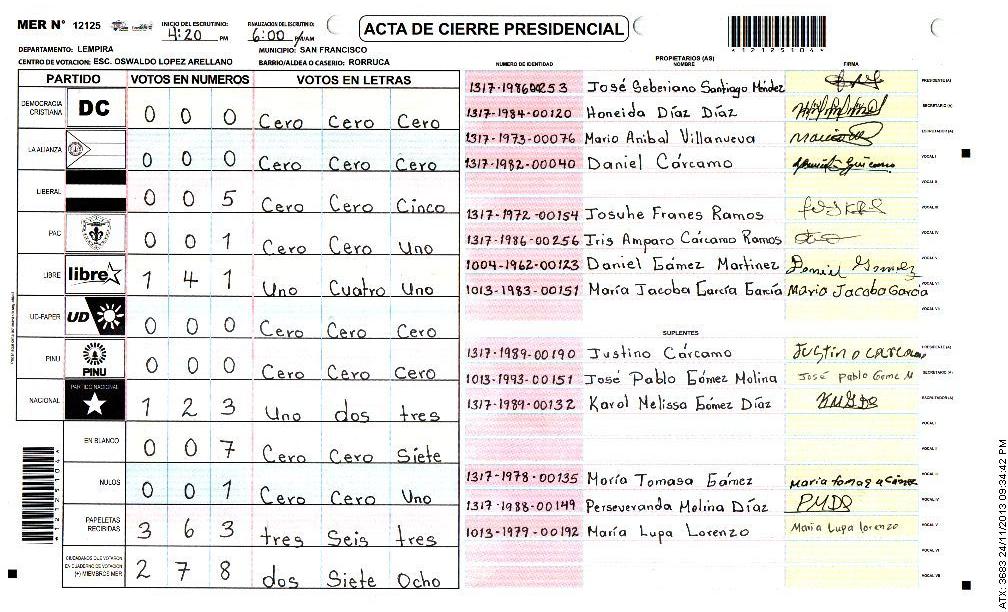 MER N° 12125
INICIO DEL ESCRUTINIO:
4:20 PM
FINALIZACION DEL ESCRUTINIO:
6:00 PM/AM
ACTA DE CIERRE PRESIDENCIAL
*12125104*
DEPARTAMENTO: LEMPIRA
MUNICIPIO: SAN FRANCISCO
CENTRO DE VOTACION: ESC. OSWALDO LOPEZ ARELLANO
BARRIO/ALDEA O CASERIO: RORRUCA
PARTIDO VOTOS EN NUMEROS VOTOS EN LETRAS
DEMOCRACIA CRISTIANA DC 0 0 0 Cero Cero Cero
LA ALIANZA 0 0 0 Cero Cero Cero
LIBERAL 0 0 5 Cero Cero Cinco
PAC 0 0 1 Cero Cero Uno
LIBRE libre 1 4 1 Uno Cuatro Uno
UD-FAPER UD 0 0 0 Cero Cero Cero
PINU PINU 0 0 0 Cero Cero Cero
NACIONAL PARTIDO NACIONAL 1 2 3 Uno dos tres
EN BLANCO 0 0 7 Cero Cero Siete
NULOS 0 0 1 Cero Cero Uno
PAPELETAS RECIBIDAS 3 6 3 tres Seis tres
CIUDADANOS QUE VOTARON EN CUADERNO DE VOTACION (+) MIEMBROS MER 2 7 8 dos Siete Ocho
*12125104*
PROPIETARIOS (AS)
NUMERO DE IDENTIDAD NOMBRE FIRMA
1317-1986-00253 José Seberiano Santiago Méndez PRESIDENTE (A)
1317-1984-00120 Honeida Díaz Díaz SECRETARIO (A)
1317-1973-00076 Mario Anibal Villanueva ESCRUTADOR (A)
1317-1982-00040 Daniel Cárcamo VOCAL I
VOCAL II
1317-1972-00154 Josuhe Franes Ramos VOCAL III
1317-1986-00256 Iris Amparo Cárcamo Ramos VOCAL IV
1004-1962-00123 Daniel Gámez Martinez Daniel Gomez VOCAL V
1013-1983-00151 María Jacoba García García Maria Jacoba Garcia VOCAL VI
VOCAL VII
SUPLENTES
1317-1989-00190 Justino Cárcamo Justino carcamo PRESIDENTE (A)
1013-1993-00151 José Pablo Gómez Molina José pablo Gome M SECRETARIO (A)
1317-1989-00132 Karol Melissa Gómez Díaz KMGD ESCRUTADOR (A)
VOCAL I
VOCAL II
1317-1978-00135 María Tomasa Gámez maria tomaza Gámez VOCAL III
1317-1988-00149 Perseveranda Molina Díaz PMDS VOCAL IV
1013-1979-00192 María Lupa Lorenzo Maria Lupa lorenzo VOCAL V
VOCAL VI
VOCAL VII
ATX: 3683 24/11/2013 09:34:42 PM